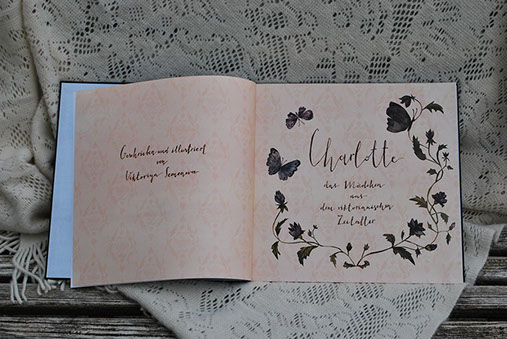 Geschrieben und illustriert
von
Viktoriya Semenova
Charlotte
das Mädchen
aus
dem viktorianischen
Zeitalter